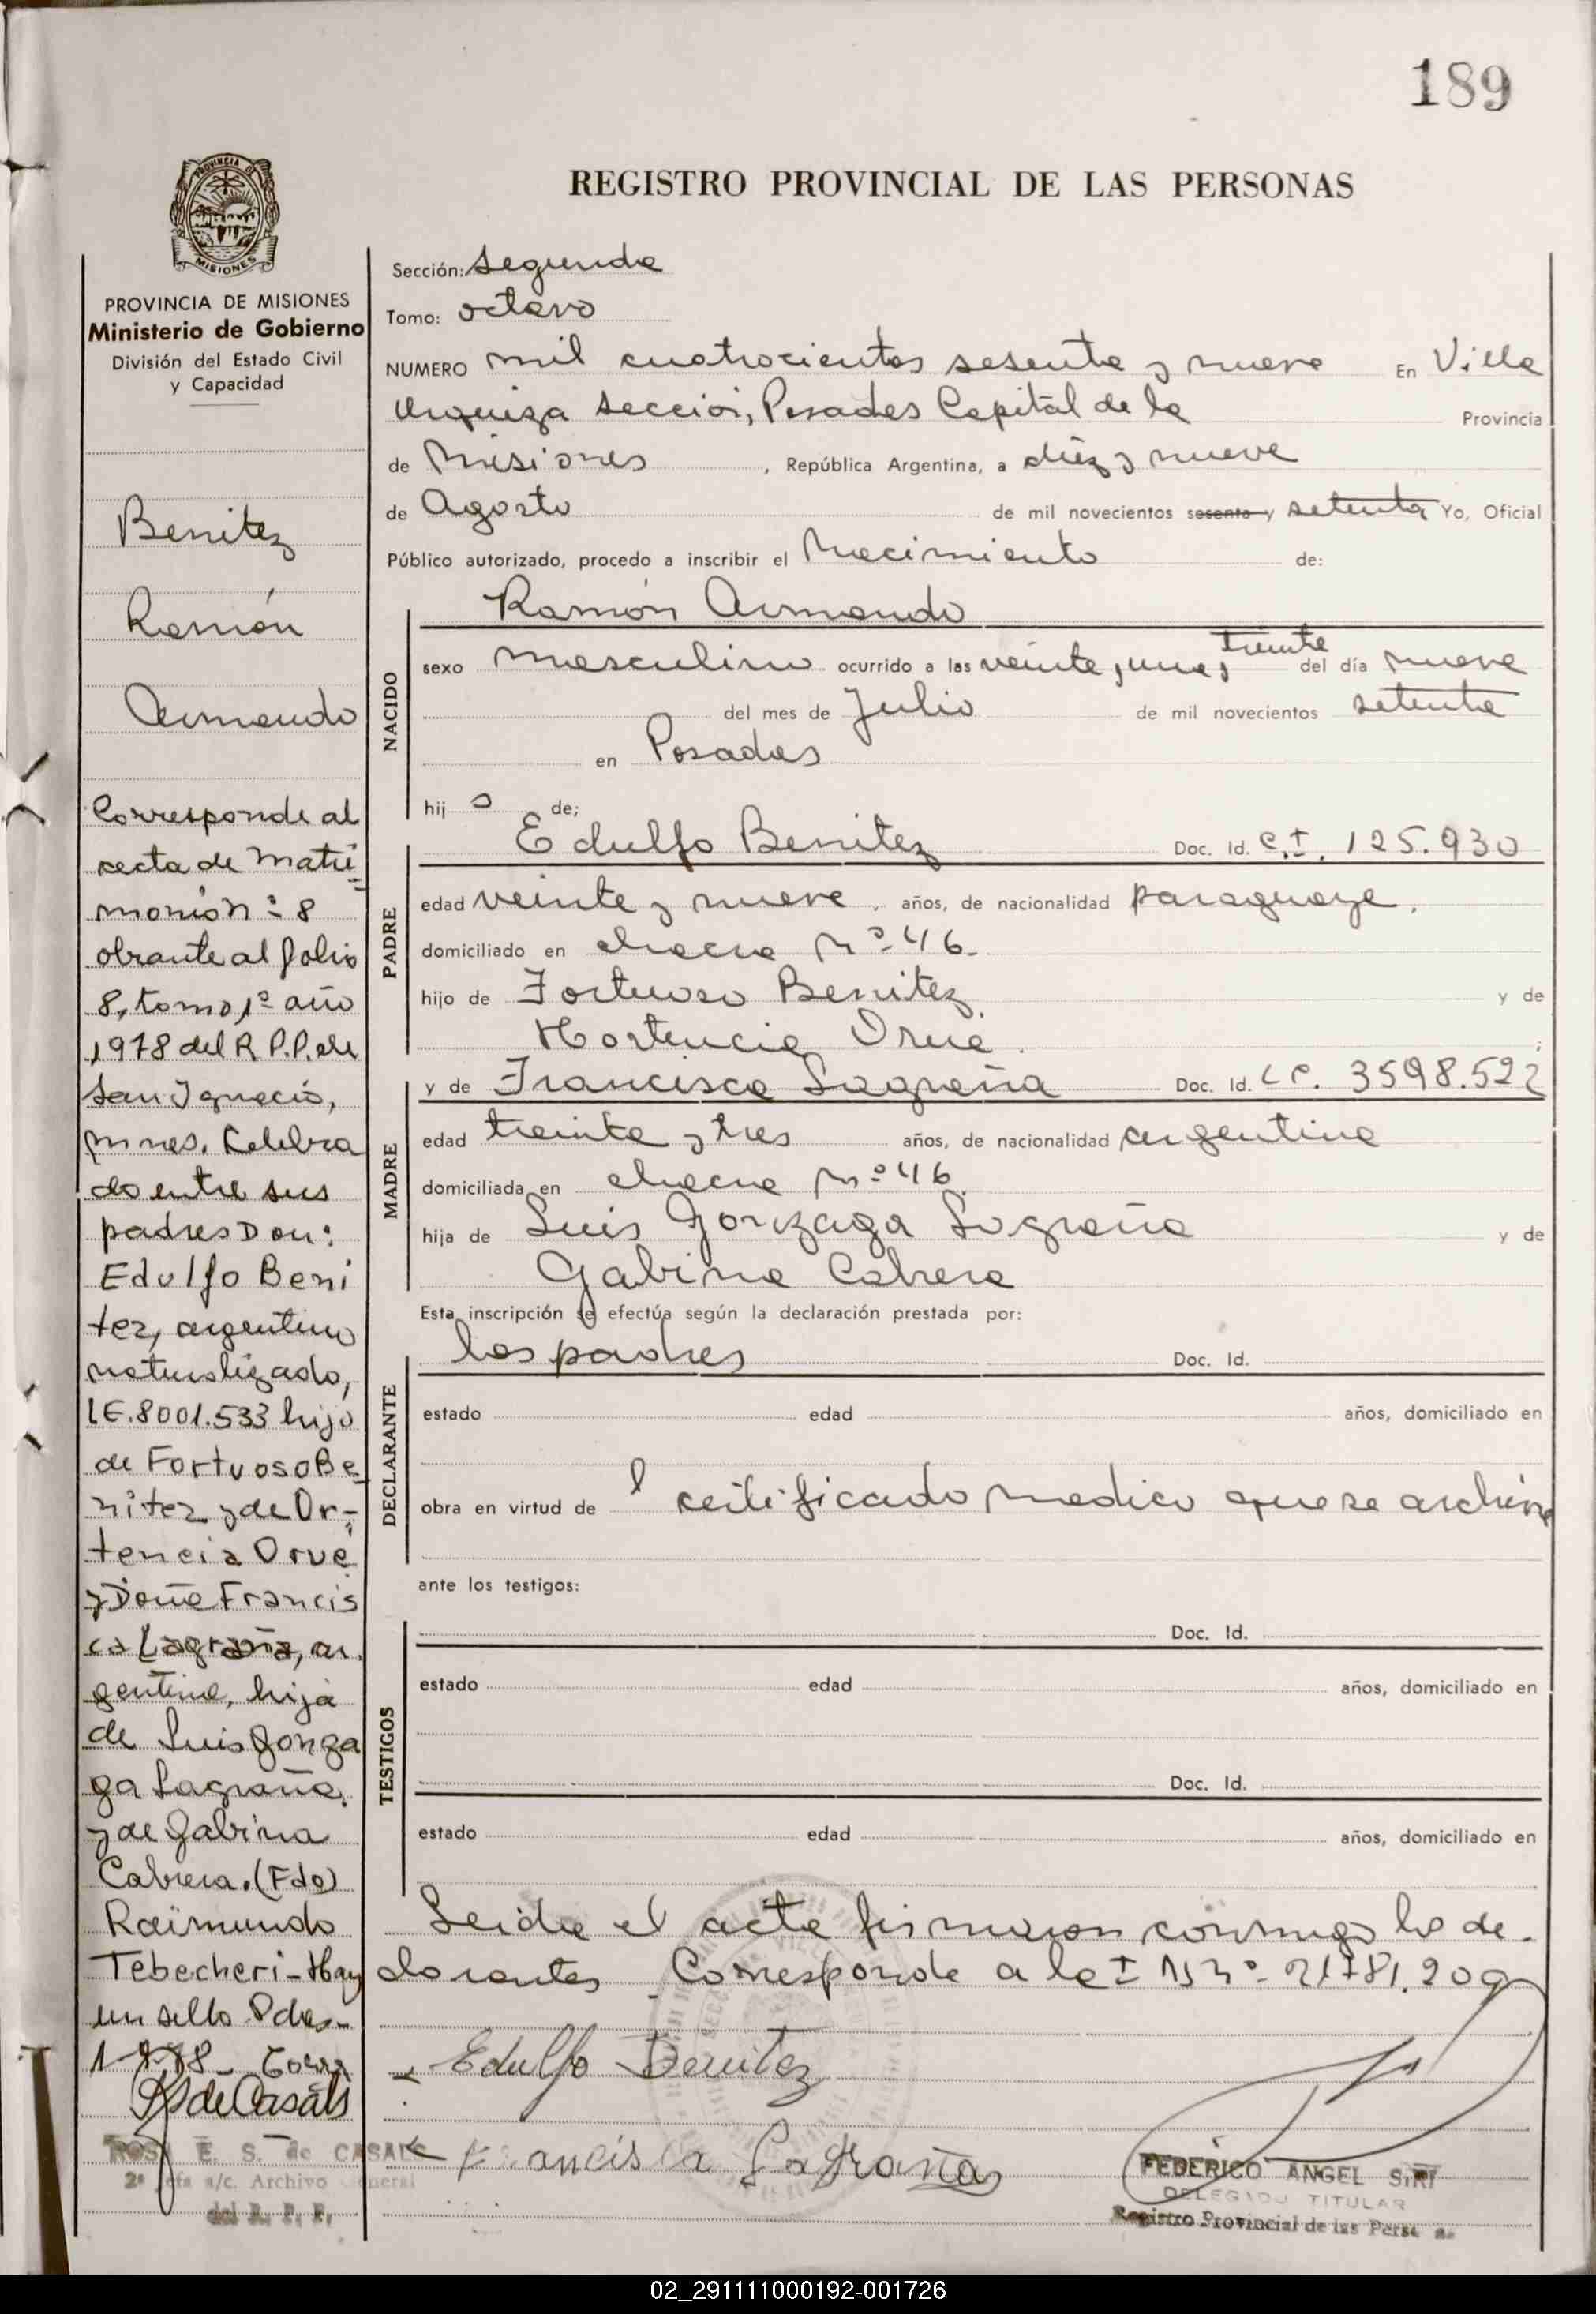 189
REGISTRO PROVINCIAL DE LAS PERSONAS
PROVINCIA DE MISIONES
Ministerio de Gobierno
División del Estado Civil
y Capacidad
Benitez
Ramón
Armando
Corresponde al
acta de Matri
monio nº 8
obrante al folio
8, tomo 1º año
1978 del R.P.P. de
San Ignacio,
Mnes. Celebra
do entre sus
padres Don:
Edulfo Beni
tez, argentino
naturalizado,
LE.8001.533 hijo
de Fortuoso Be
nitez y de Or-
tencia Orué
y Doña Francis
ca Lagraña, ar
gentina, hija
de Luis Gonza
ga Lagraña
y de Gabina
Cabrera. (Fdo)
Raimundo
Tebecheri - Hay
un sello Pdas-
RS de Casals
ROSA E. S. de CASALS
2º Jefa a/c. Archivo General
del R. P. P.
Sección: Segunda
Tomo: octavo
NUMERO mil cuatrocientos sesenta y nueve En Villa
Urquiza Sección, Posadas Capital de la Provincia
de Misiones, República Argentina, a diez y nueve
de Agosto de mil novecientos sesenta y setenta Yo, Oficial
Público autorizado, procedo a inscribir el Nacimiento de:
Ramón Armando
NACIDO
sexo masculino ocurrido a las veinte y una y treinta del día nueve
del mes de Julio de mil novecientos setenta
en Posadas
hij o de;
PADRE
Edulfo Benitez Doc. Id. C.I. 125.930
edad veinte y nueve años, de nacionalidad paraguaya.
domiciliado en chacra Nº 46.
hijo de Fortuoso Benitez y de
Hortencia Orué.
MADRE
y de Francisca Lagraña Doc. Id. LC. 3598.522
edad treinta y tres años, de nacionalidad argentina
domiciliada en chacra Nº 46.
hija de Luis Gonzaga Lagraña y de
Gabina Cabrera
Esta inscripción se efectúa según la declaración prestada por:
DECLARANTE
los padres Doc. Id.
estado edad años, domiciliado en
obra en virtud de l certificado medico que se archiva
ante los testigos:
TESTIGOS
Doc. Id.
estado edad años, domiciliado en
Doc. Id.
estado edad años, domiciliado en
Leida el acta firmaron conmigo los de-
clarantes. Corresponde a la I Nº 21781.209
Edulfo Benitez
Francisca Lagraña
FEDERICO ANGEL SIRI
DELEGADO TITULAR
Registro Provincial de las Personas
02_291111000192-001726